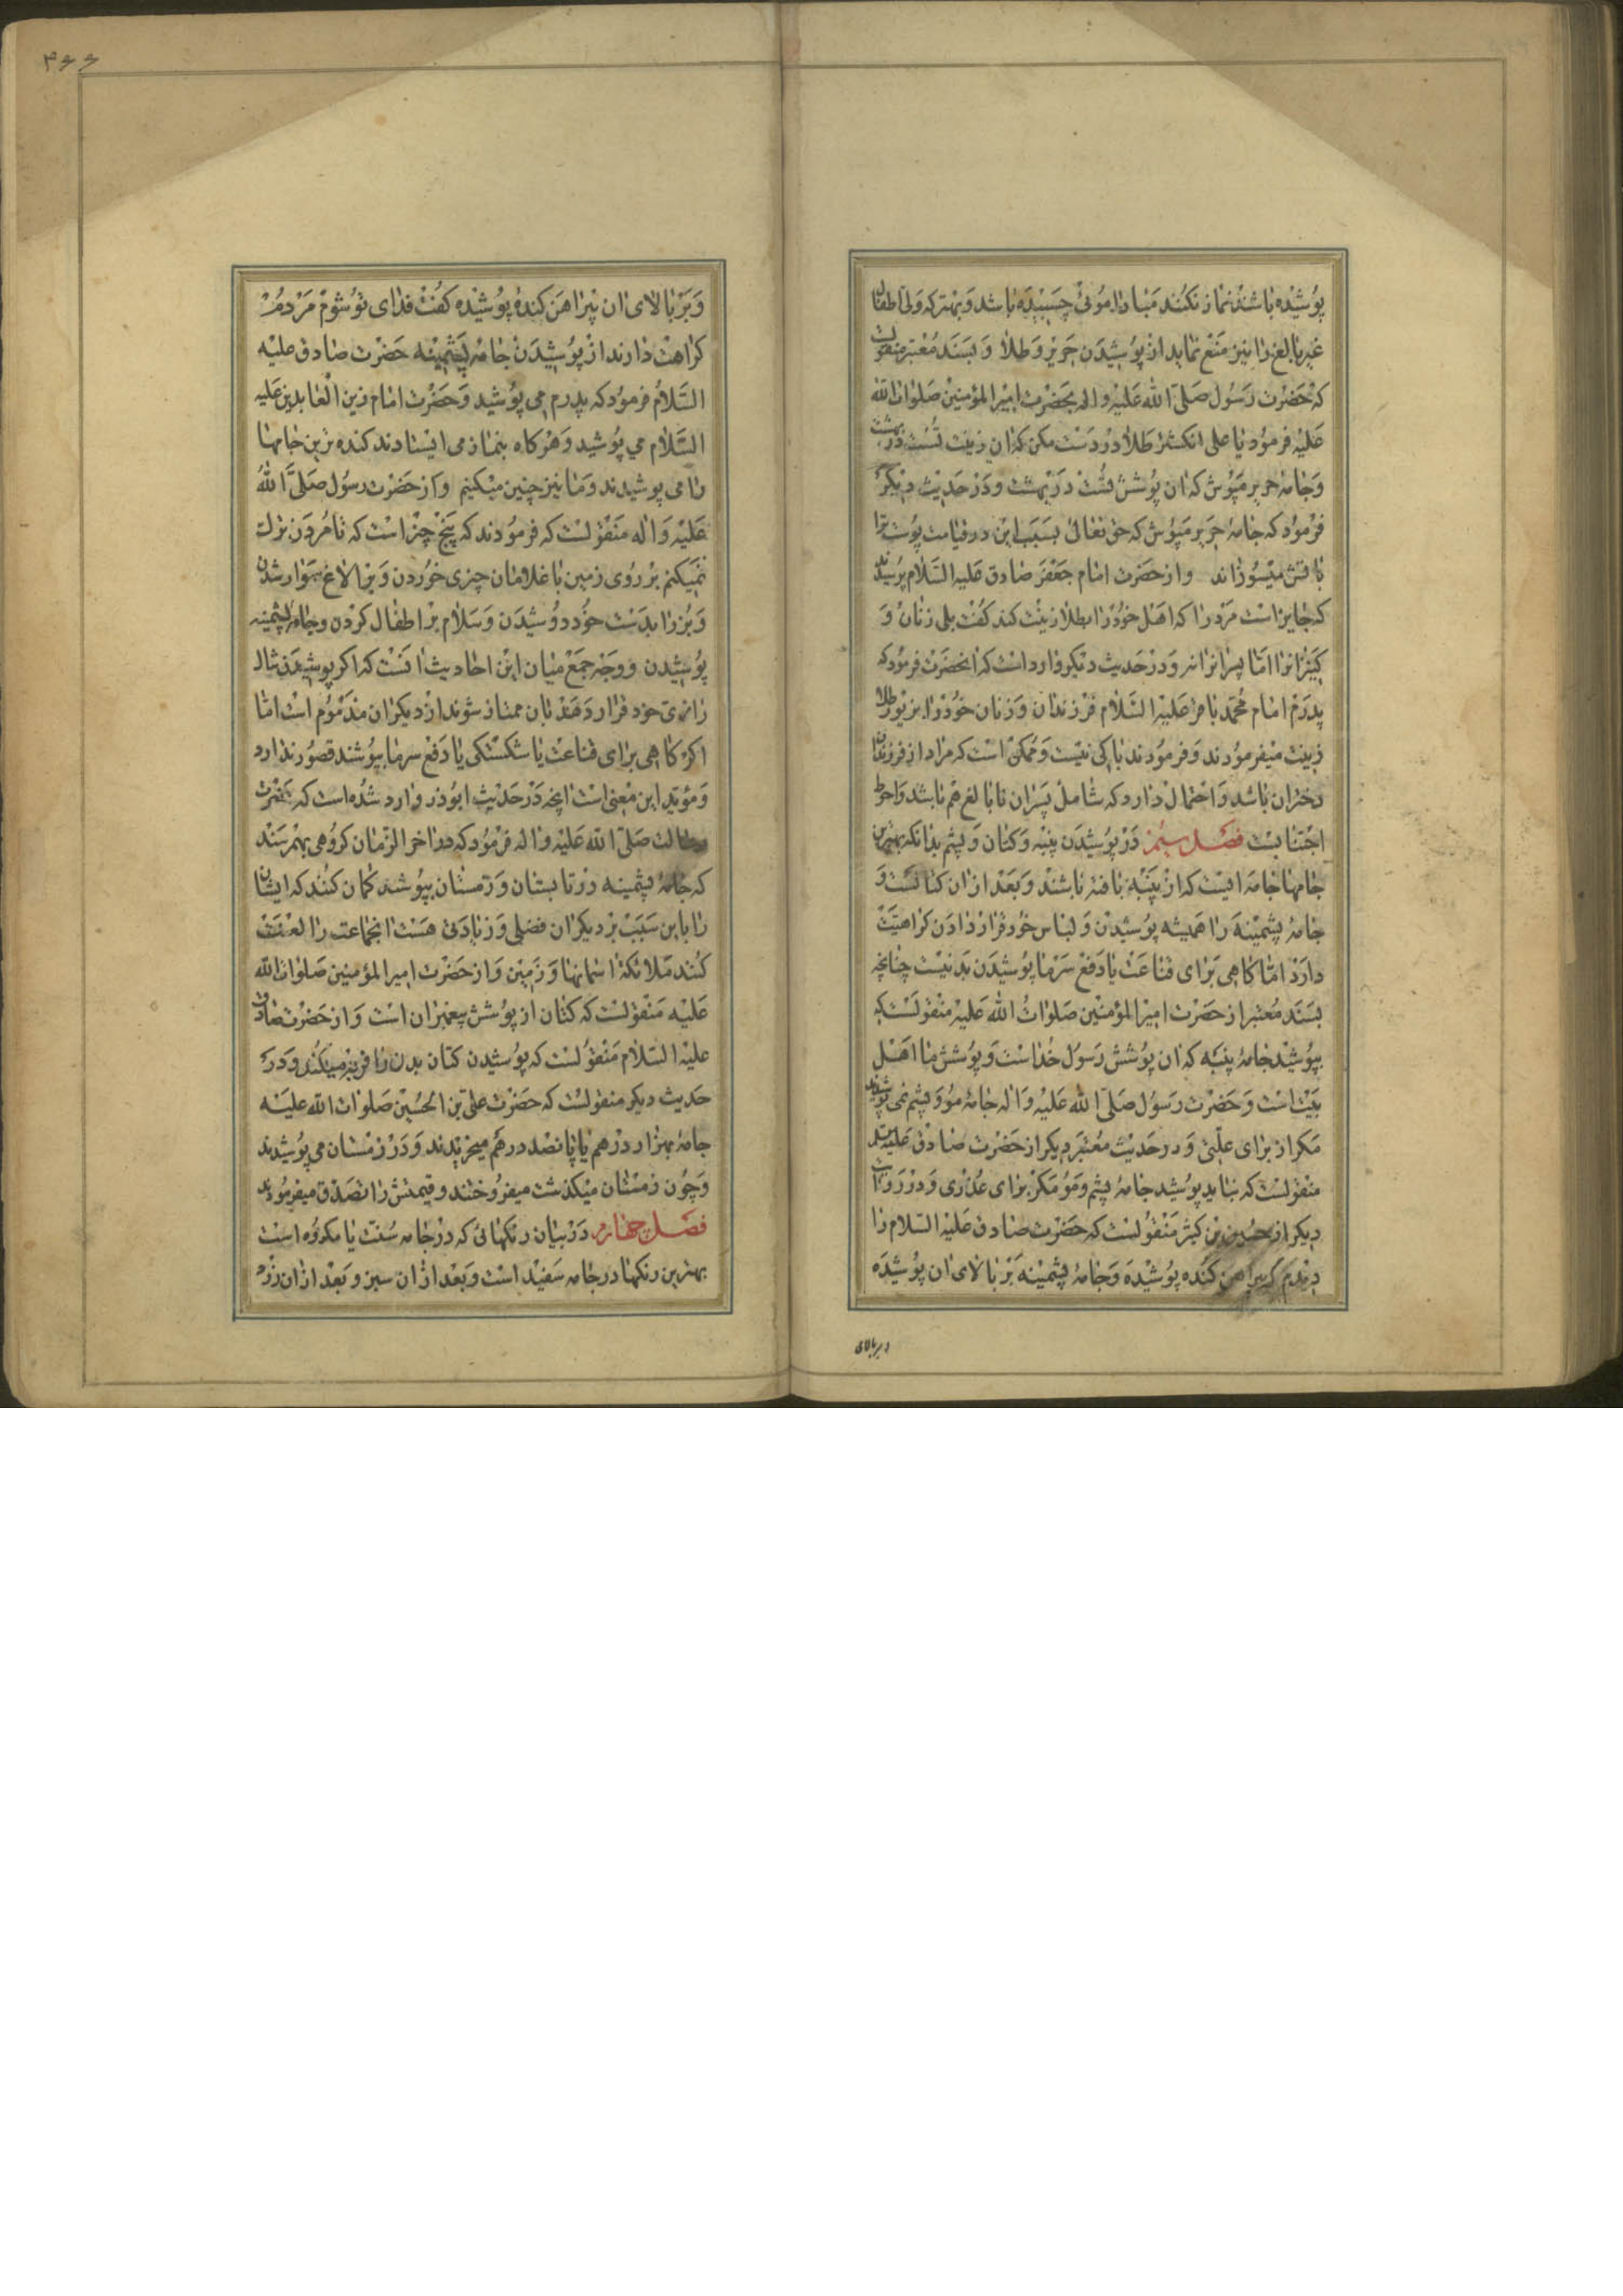 پوشیده باشند نماز نکنند مبادا موئی چسبیده باشد و بهتر که ولی اطفال
غیر بالغ را نیز منع نماید از پوشیدن حریر و طلا و بسند معتبر منقولست
که حضرت رسول صلی الله علیه و اله بحضرت امیر المؤمنین صلوات الله
علیه فرمود یا علی انکشتر طلا در دست مکن که ان زینت تست در بهشت
و جامه حریر مپوش که ان پوشش تست در بهشت و در حدیث دیکر
فرمود که جامه حریر مپوش که حق تعالی بسبب این در قیامت پوست ترا
باتش میسوزاند و از حضرت امام جعفر صادق علیه السلام پرسیدند
که جایز است مرد را که اهل خود را بطلا زینت کند کفت بلی زنان و
کنیزانرا اما پسرانرا نه و در حدیث دیکر وارد است که انحضرت فرمود که
پدرم امام محمد باقر علیه السلام فرزندان و زنان خود را بزیور طلا
زینت میفرمودند و فرمودند باکی نیست و ممکن است که مراد از فرزندان
دختران باشد و احتمال دارد که شامل پسران نابالغ هم باشد و احوط
اجتنابست فصل سیم در پوشیدن پنبه و کتان و پشم بدانکه بهترین
جامها جامه ایست که از پنبه بافته باشند و بعد از ان کتانست و
جامه پشمینه را همیشه پوشیدن و لباس خود قرار دادن کراهیت
دارد اما کاهی برای قناعت یا دفع سرما پوشیدن بد نیست چنانچه
بسند معتبر از حضرت امیر المؤمنین صلوات الله علیه منقولست که
بپوشید جامه پنبه که ان پوشش رسول خداست و پوشش ما اهل
بیت است و حضرت رسول صلی الله علیه و اله جامه مو و پشم نمی پوشیدند
مکر از برای علتی و در حدیث معتبر دیکر از حضرت صادق علیه السلام
منقولست که نباید پوشید جامه پشم و مو مکر برای عذری و در روایت
دیکر از حسین بن کثیر منقولست که حضرت صادق علیه السلام را
دیدم که پیراهن کنده پوشیده و جامه پشمینه بر بالای ان پوشیده
و بر بالای
۳۶۶
و بر بالای ان پیراهن کنده پوشیده کفت فدای تو شوم مردم
کراهت دارند از پوشیدن جامه پشمینه حضرت صادق علیه
السلام فرمود که پدرم می پوشید و حضرت امام زین العابدین علیه
السلام می پوشید و هرکاه بنماز می ایستادند کنده ترین جامها
را می پوشیدند و ما نیز چنین میکنیم و از حضرت رسول صلی الله
علیه و اله منقولست که فرمودند که پنج چیز است که تا مردن ترک
نمیکنم بر روی زمین با غلامان چیزی خوردن و بر الاغ سوار شدن
و بز را بدست خود دوشیدن و سلام بر اطفال کردن و جامه پشمینه
پوشیدن و وجه جمع میان این احادیث انست که اکر پوشیدن شال
را زی خود قرار دهند تا بان ممتاز شوند از دیکران مذموم است اما
اکر کاهی برای قناعت یا شکستکی یا دفع سرما بپوشند قصور ندارد
و مؤید این معنی است انچه در حدیث ابوذر وارد شده است که حضرت
رسالت صلی الله علیه و اله فرمود که در اخر الزمان کروهی بهم رسند
که جامه پشمینه در تابستان و زمستان بپوشند کمان کنند که ایشان
را باین سبب بر دیکران فضلی و زیادتی هست انجماعت را لعنت
کنند ملائکه اسمانها و زمین و از حضرت امیر المؤمنین صلوات الله
علیه منقولست که کتان از پوشش پیغمبران است و از حضرت صادق
علیه السلام منقولست که پوشیدن کتان بدن را فربه میکند و در
حدیث دیکر منقولست که حضرت علی بن الحسین صلوات الله علیه
جامه بهزار درهم یا پانصد درهم میخریدند و در زمستان می پوشیدند
و چون زمستان میکذشت میفروختند و قیمتش را تصدق میفرمودند
فصل چهارم در بیان رنکهائی که در جامه سنت یا مکروه است
بهترین رنکها در جامه سفید است و بعد از ان سبز و بعد از ان زرد